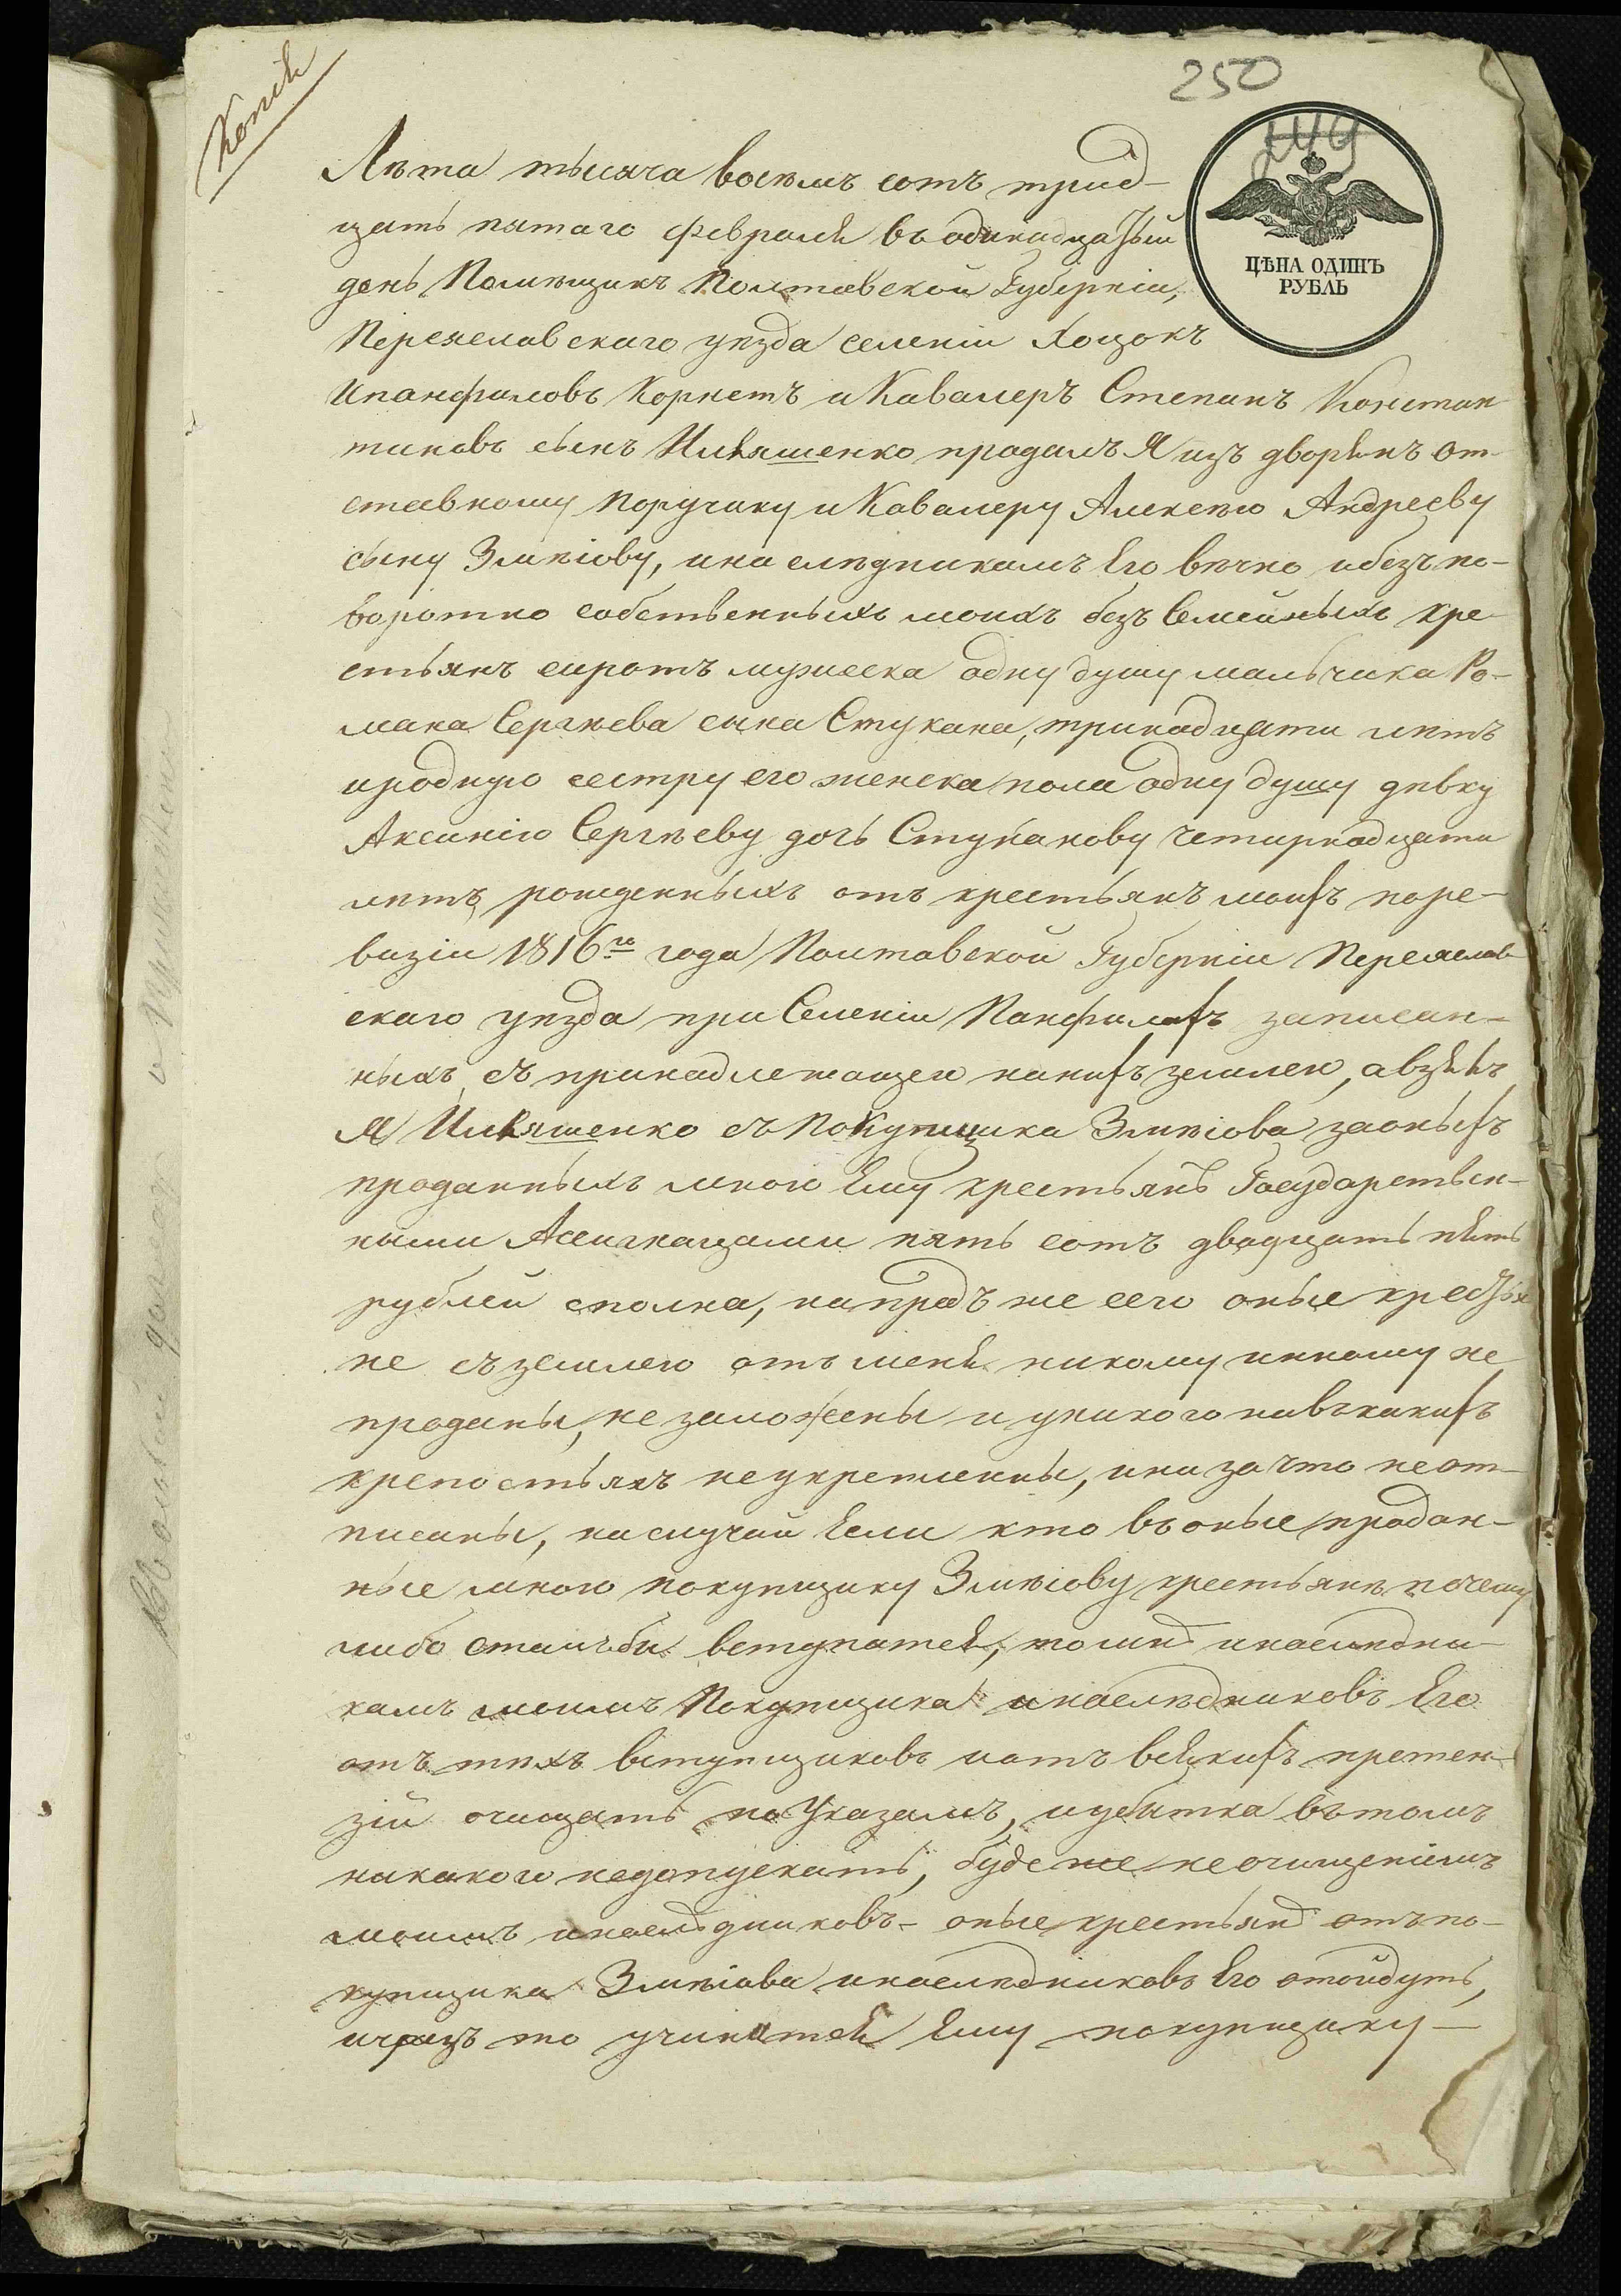 Копія
250
ЦѢНА ОДИНЪ
РУБЛЬ
Лѣта тысяча восѣмъ сотъ трид-
цать пятаго февраля въ одинадцатый
день, Помѣщикъ Полтавской Губерніи,
Переяславскаго уѣзда селеніи Хоцокъ
Ипанфиловъ Корнетъ и Кавалеръ Степанъ Констан
тиновъ сынъ Илляшенко продалъ Я изъ дворянъ от-
ставному Поручику и Кавалеру Алексѣю Андрееву
сыну Змѣіову, инаслѣдникамъ Его вѣчно ибезъ по-
воротно собственныхъ моихъ безъ Семейныхъ кре-
стьянъ сиротъ мужеска одну душу мальчика Ро-
мана Сергѣева сына Стукана, тринадцати лѣтъ
иродную сестру его женска пола одну душу дѣвку
Аксинію Сергѣеву дочь Стуканову четирнадцати
лѣтъ рожденныхъ отъ крестьянъ моихъ поре-
визіи 1816го года Полтавской Губерніи Переяслав-
скаго уѣзда при Селеніи Панфилахъ записан-
ныхъ, съ принадлежащею нанихъ землею, авзялъ
Я Илляшенко съ Покупщика Змѣіова заоныхъ
проданныхъ мною Ему крестьянъ Государствен-
ными Асигнацами пять сотъ двадцать пять
рублей сполна, напредъ же сего оные крестья
не съ землею отъ меня никому инному не
проданы, не заложены и уникого нивъкакихъ
крепостьяхъ неукрепленны, ини за что неот-
писаны, наслучай Если кто въ оные продан-
ные мною покупщику Змѣіову крестьянъ почему
либо сталъбы вступатся, то мнѣ инаслѣдни-
камъ моимъ Покупщика инаслѣдниковъ Его
отъ тѣхъ вступщиковъ иотъ всякихъ претен-
зій очищать по Указамъ, иубытка въ томъ
никакого недопускать, буде же неочищеніемъ
моимъ инаслѣдниковъ- оные крестьянѣ отъ по-
купщика Змѣіова инаслѣдниковъ Его отойдутъ,
ичрезъ то учинятся Ему покупщику-